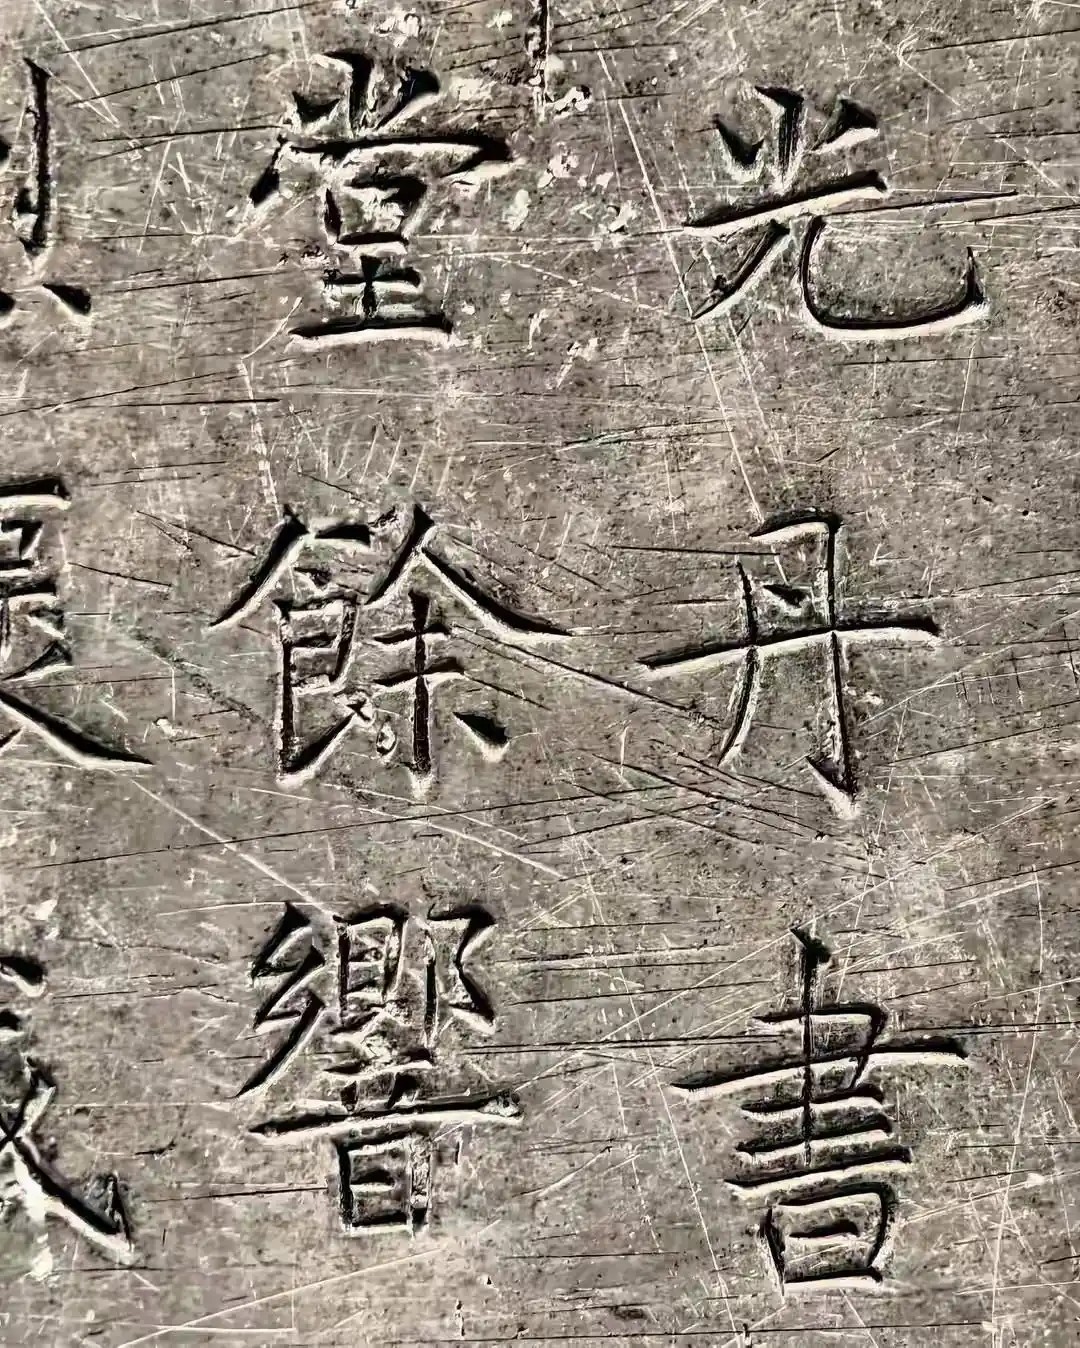 光丹書
堂餘響